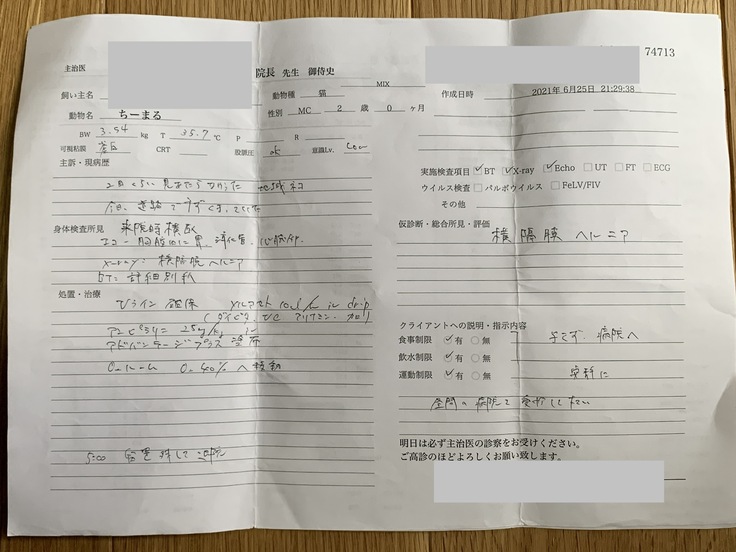 74713
主治医
院長 先生 御侍史
飼い主名
動物名 ちーまる
動物種 猫 MIX
性別 MC 2 歳 0 ヶ月
作成日時 2021年 6月25日 21:29:38
BW 3.54 kg T 35.7 ℃ P R
可視粘膜 蒼白 CRT 股脈圧 ok 意識Lv. Low
主訴・現病歴
2日くらい見あたらなかった 地域ネコ
今日、道路で
身体検査所見 来院時横臥
エコー 胸腔内に胃、消化管、
X-ray: 横隔膜ヘルニア
BT: 詳細別紙
処置・治療
Vライン 確保
アンピシリン 25mg/kg
アドバンテージプラス 塗布
O₂ルーム O₂ 40% へ移動
5:00
実施検査項目 BT X-ray Echo UT FT ECG
ウイルス検査 パルボウイルス FeLV/FIV
その他
仮診断・総合所見・評価
横隔膜ヘルニア
クライアントへの説明・指示内容
食事制限 有 無
飲水制限 有 無 病院へ
運動制限 有 無 安静に
昼間の病院で
明日は必ず主治医の診察をお受けください。
ご高診のほどよろしくお願い致します。